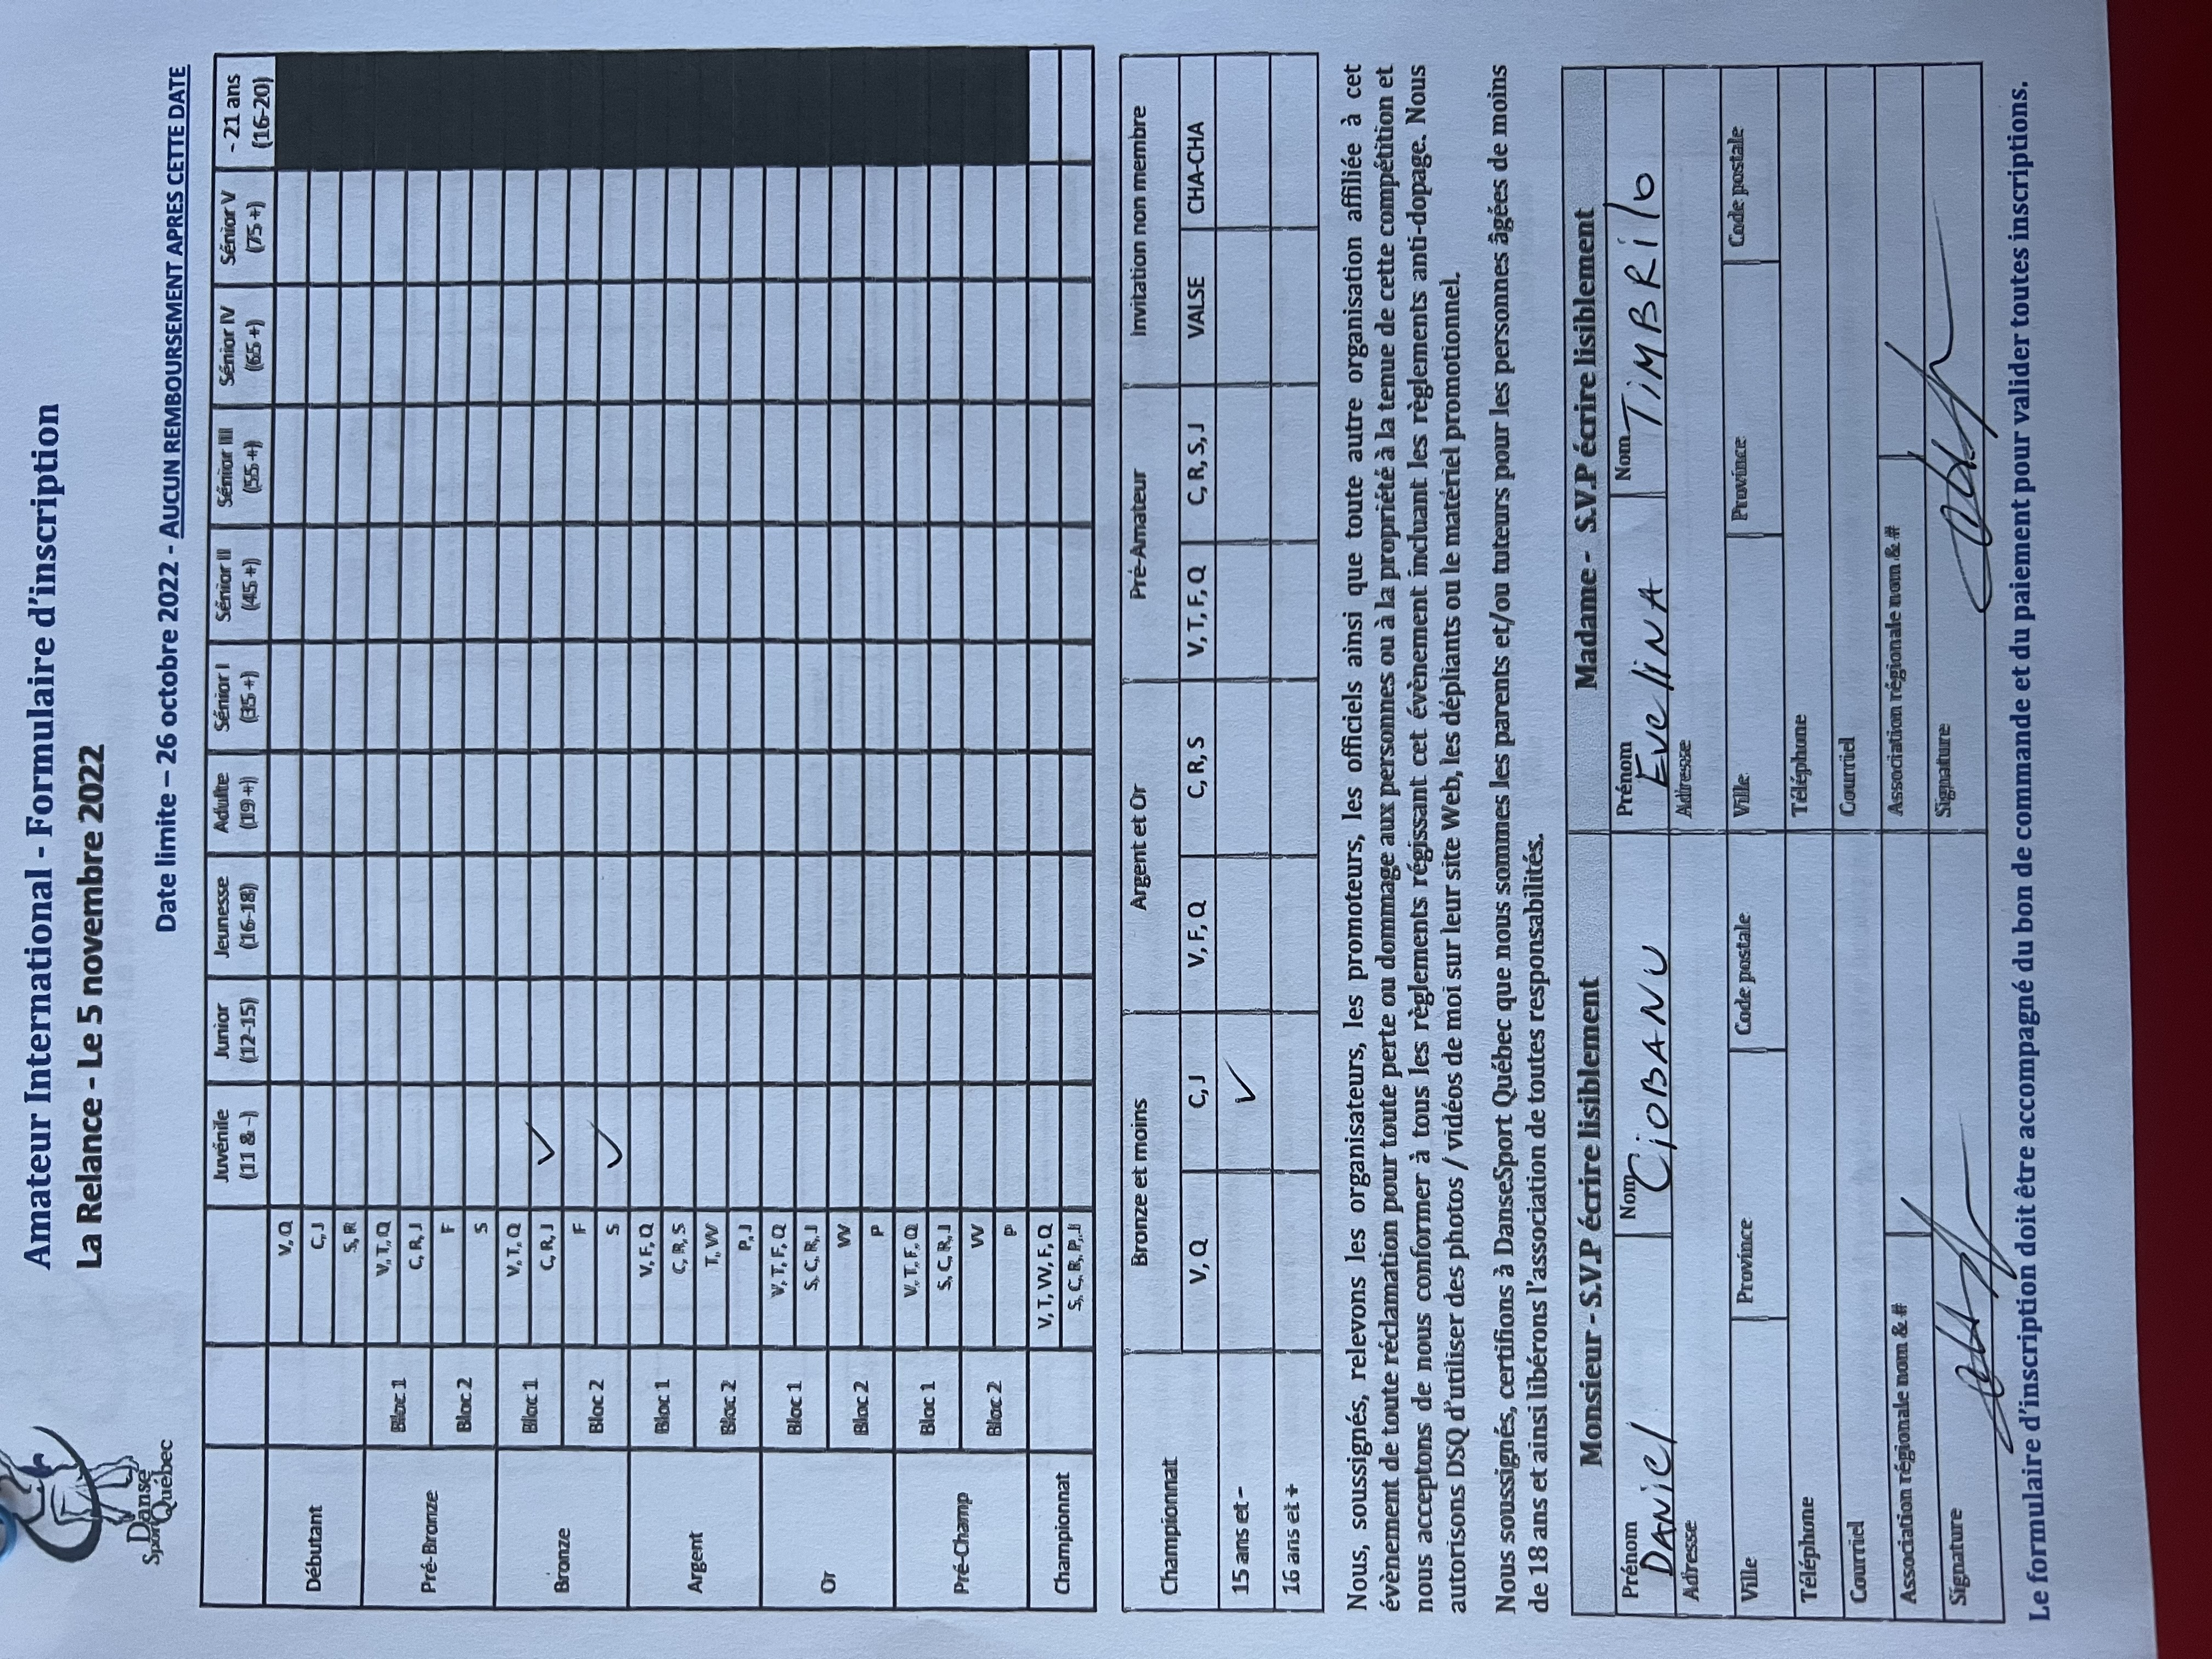 Danse
Sport Québec
Amateur International - Formulaire d'inscription
La Relance - Le 5 novembre 2022
Date limite – 26 octobre 2022 - AUCUN REMBOURSEMENT APRES CETTE DATE
Juvénile (11 & -) Junior (12-15) Jeunesse (16-18) Adulte (19 +) Sénior I (35 +) Sénior II (45 +) Sénior III (55 +) Sénior IV (65 +) Sénior V (75 +) - 21 ans (16-20)
Débutant
V, Q
C, J
S, R
Pré-Bronze
Bloc 1
V, T, Q
C, R, J
Bloc 2
F
S
Bronze
Bloc 1
V, T, Q
C, R, J ✓
Bloc 2
F
S ✓
Argent
Bloc 1
V, F, Q
C, R, S
Bloc 2
T, W
P, J
Or
Bloc 1
V, T, F, Q
S, C, R, J
Bloc 2
W
P
Pré-Champ
Bloc 1
V, T, F, Q
S, C, R, J
Bloc 2
W
P
Championnat
V, T, W, F, Q
S, C, R, P, J
Championnat
Bronze et moins Argent et Or Pré-Amateur Invitation non membre
V, Q C, J V, F, Q C, R, S V, T, F, Q C, R, S, J VALSE CHA-CHA
15 ans et – ✓
16 ans et +
Nous, soussignés, relevons les organisateurs, les promoteurs, les officiels ainsi que toute autre organisation affiliée à cet
évènement de toute réclamation pour toute perte ou dommage aux personnes ou à la propriété à la tenue de cette compétition et
nous acceptons de nous conformer à tous les règlements régissant cet évènement incluant les règlements anti-dopage. Nous
autorisons DSQ d'utiliser des photos / vidéos de moi sur leur site Web, les dépliants ou le matériel promotionnel.
Nous soussignés, certifions à DanseSport Québec que nous sommes les parents et/ou tuteurs pour les personnes âgées de moins
de 18 ans et ainsi libérons l'association de toutes responsabilités.
Monsieur - S.V.P écrire lisiblement Madame - S.V.P écrire lisiblement
Prénom Nom Prénom Nom
DANIEL CIOBANU EVELINA TIMBRILO
Adresse Adresse
Ville Province Code postale Ville Province Code postale
Téléphone Téléphone
Courriel Courriel
Association régionale nom & # Association régionale nom & #
Signature Signature
Le formulaire d'inscription doit être accompagné du bon de commande et du paiement pour valider toutes inscriptions.